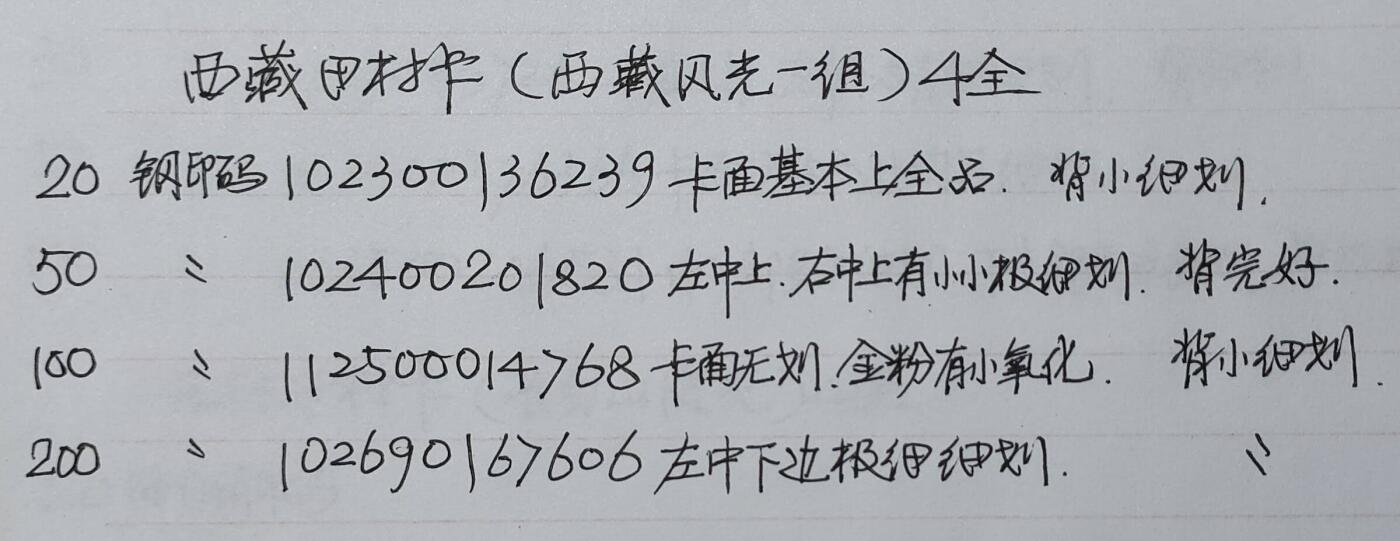 西藏田村卡(西藏风光一组)4全
20 钢印码102300136239卡面基本上全品. 背小细划.
50 〃 102400201820左中上.右中上有小小极细划. 背完好.
100 〃 112500014768卡面无划.金粉有小氧化. 背小细划.
200 〃 102690167606左中下边极细细划. 〃